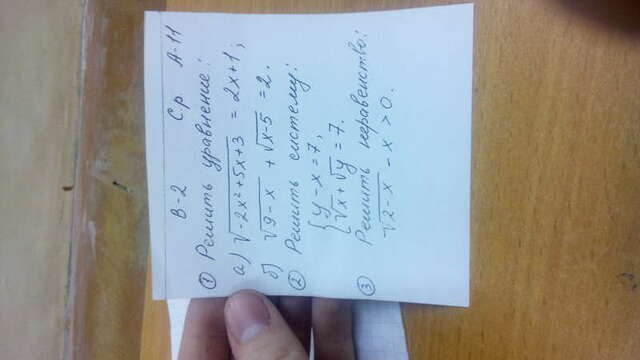 В-2 Ср. А-11
① Решить уравнение:
а) √-2x²+5x+3 = 2x+1;
б) √9-x + √x-5 = 2.
② Решить систему:
{ y-x=7,
√x+√y=7.
③ Решить неравенство:
√2-x - x > 0.